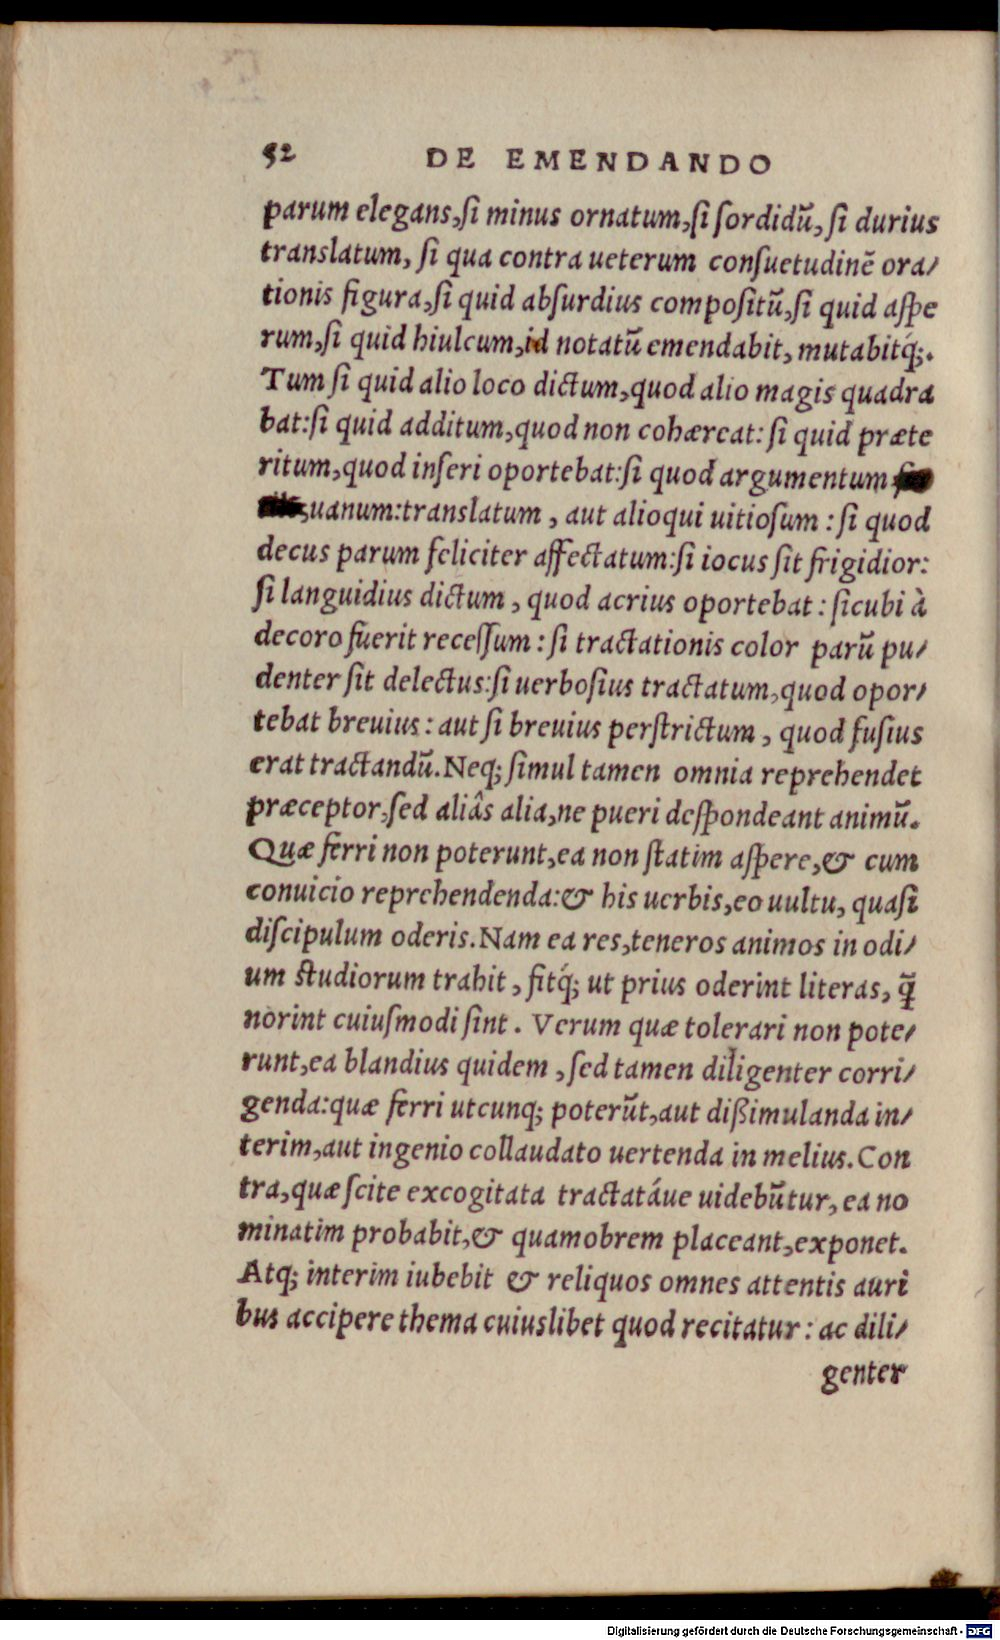 52 DE EMENDANDO
parum elegans, ſi minus ornatum, ſi ſordidũ, ſi durius
translatum, ſi qua contra ueterum conſuetudinẽ ora⸗
tionis figura, ſi quid abſurdius compoſitũ, ſi quid aſpe
rum, ſi quid hiulcum, id notatũ emendabit, mutabitq́;.
Tum ſi quid alio loco dictum, quod alio magis quadra
bat: ſi quid additum, quod non cohæreat: ſi quid præte
ritum, quod inſeri oportebat: ſi quod argumentum
uanum: translatum, aut alioqui uitioſum: ſi quod
decus parum feliciter affectatum: ſi iocus ſit frigidior:
ſi languidius dictum, quod acrius oportebat: ſicubi à
decoro fuerit receſſum: ſi tractationis color parũ pu⸗
denter ſit delectus: ſi uerboſius tractatum, quod opor⸗
tebat breuius: aut ſi breuius perſtrictum, quod fuſius
erat tractandũ. Neq; ſimul tamen omnia reprehendet
præceptor, ſed aliâs alia, ne pueri deſpondeant animũ.
Quæ ferri non poterunt, ea non ſtatim aſpere, & cum
conuicio reprehendenda: & his uerbis, eo uultu, quaſi
diſcipulum oderis. Nam ea res, teneros animos in odi⸗
um ſtudiorum trahit, fitq́; ut prius oderint literas, q̃
norint cuiuſmodi ſint. Verum quæ tolerari non pote⸗
runt, ea blandius quidem, ſed tamen diligenter corri⸗
genda: quæ ferri utcunq; poterũt, aut dißimulanda in⸗
terim, aut ingenio collaudato uertenda in melius. Con
tra, quæ ſcite excogitata tractatáue uidebũtur, ea no
minatim probabit, & quamobrem placeant, exponet.
Atq; interim iubebit & reliquos omnes attentis auri
bus accipere thema cuiuslibet quod recitatur: ac dili⸗
genter
Digitalisierung gefördert durch die Deutsche Forschungsgemeinschaft - DFG